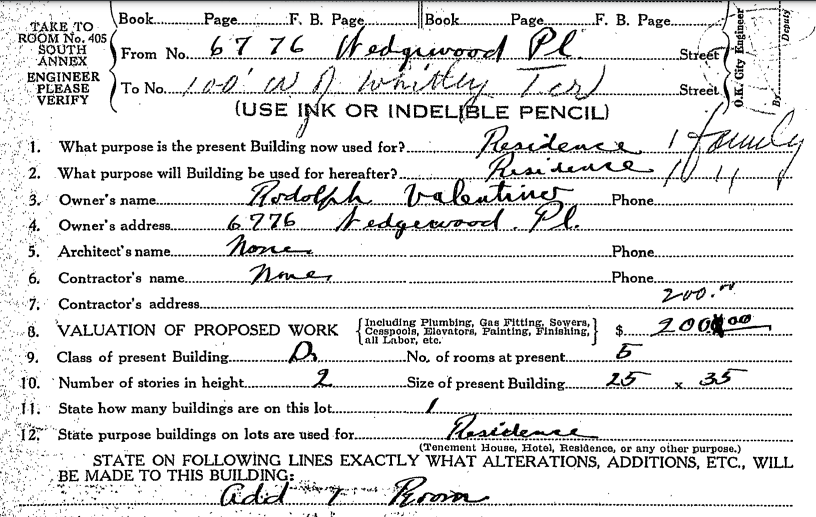 Book Page F. B. Page Book Page F. B. Page
TAKE TO
ROOM No. 405
SOUTH
ANNEX
ENGINEER
PLEASE
VERIFY
From No. 6776 Wedgewood Pl. Street
To No. 100' W of Whitley Ter Street
O.K. City Engineer
By Deputy
(USE INK OR INDELIBLE PENCIL)
1. What purpose is the present Building now used for? Residence 1 family
2. What purpose will Building be used for hereafter? Residence 1 " "
3. Owner's name Rodolph Valentino Phone
4. Owner's address 6776 Wedgewood. Pl.
5. Architect's name None Phone
6. Contractor's name None Phone
7. Contractor's address 200.00
8. VALUATION OF PROPOSED WORK {Including Plumbing, Gas Fitting, Sewers, Cesspools, Elevators, Painting, Finishing, all Labor, etc.} $ 200 00
9. Class of present Building D No. of rooms at present 5
10. Number of stories in height 2 Size of present Building 25 x 35
11. State how many buildings are on this lot 1
12. State purpose buildings on lots are used for Residence
(Tenement House, Hotel, Residence, or any other purpose.)
STATE ON FOLLOWING LINES EXACTLY WHAT ALTERATIONS, ADDITIONS, ETC., WILL
BE MADE TO THIS BUILDING:
Add 1 Room